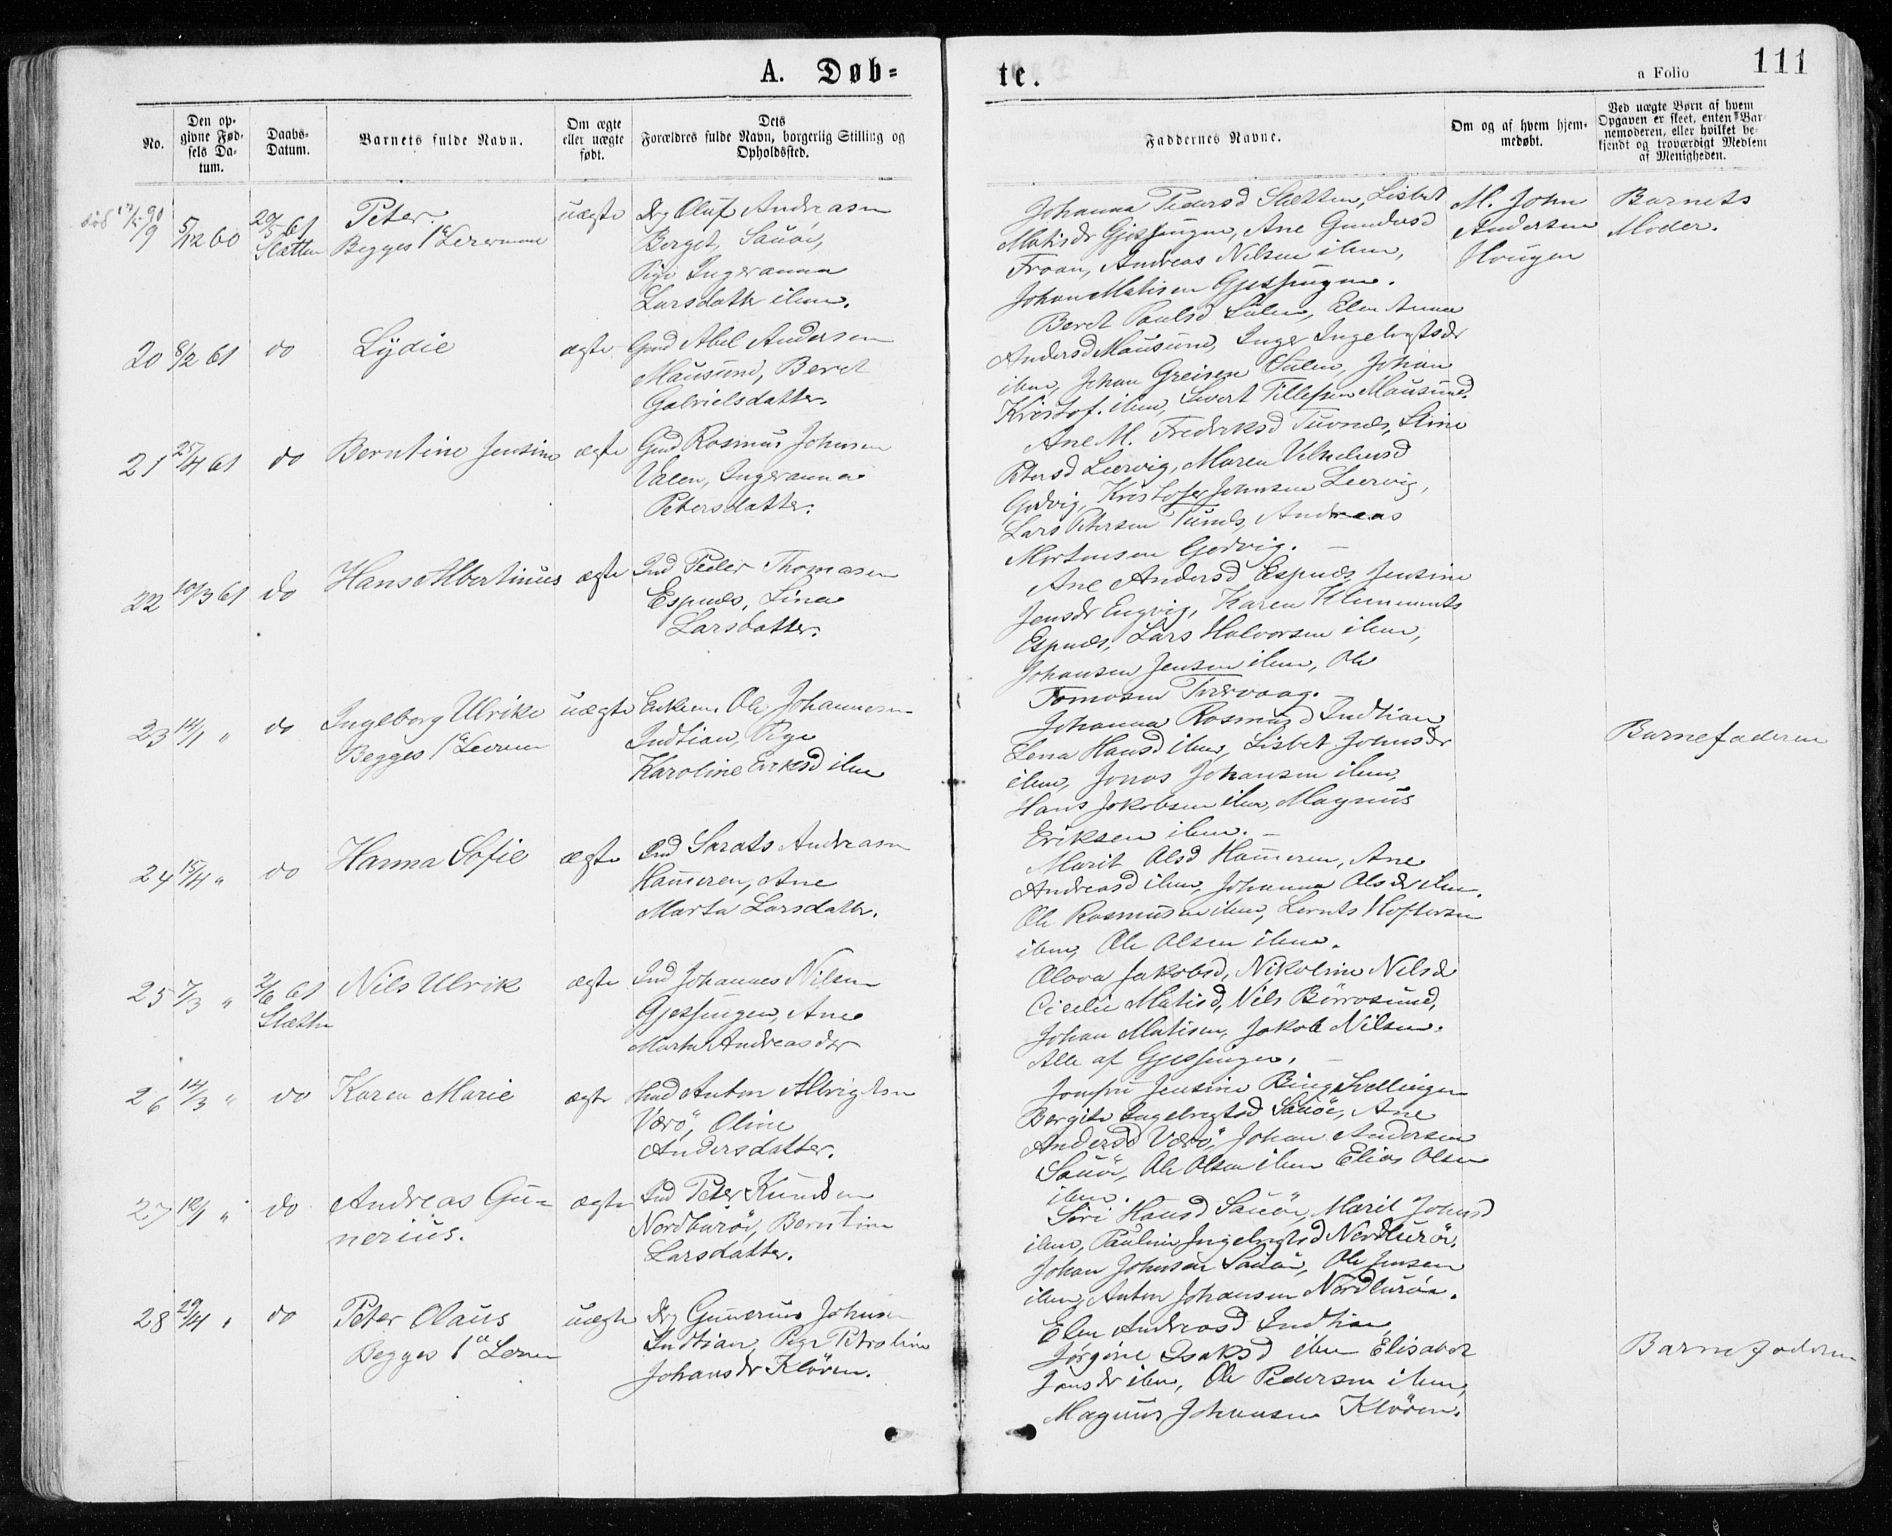 A. Døb=
te.
a Folio 111
No.
Den op-
givne Fød-
sels Da-
tum.
Daabs-
Datum.
Barnets fulde Navn.
Om ægte
eller uægte
født.
Dets
Forældres fulde Navn, borgerlig Stilling og
Opholdssted.
Faddernes Navne.
Om og af hvem hjem-
medøbt.
Ved uægte Børn af hvem
Opgaven er skeet, enten Bar-
nemoderen, eller hvilket be-
kjendt og troværdigt Medlem
af Menigheden.
5/12 60
20/5 61
Slætten
Peter.
Begges 1ste Leiermaal
uægte
Drg Oluf Andreasen
Berget, Sauøi,
Pige Ingeranna
Larsdatter ibm.
Johanna Pedersd Sletten, Lisbet
Matisdr Gjessingen, Ane Gundersd
Froan, Andreas Nilsen ibm,
Johan Matisen Gjessingen.
M. John
Andersen
Hougen
Barnets
Moder.
20 8/2 61
do
Lydie
ægte
Gmd Abel Andersen
Mausund, Beret
Gabrielsdatter.
Beret Paulsd Sulen, Elen Anna
Andersd Mausund, Inger Ingebrigtsdr
ibm, Johan Greisen Sulen, Johan
Kristof. ibm, Sivert Tillefsen Mausund.
21 25/4 61
do
Berntine Jensine
ægte
Gmd Rasmus Johnsen
Valen, Ingeranna
Petersdatter.
Ane M. Frederksd Tuvnes, Stine
Petersd Leervig, Maren Vilhelmsd
Gjedvig, Kristofer Johnsen Leervig,
Lars Petersen Andreas
Mortensen Gjedvig.
22 10/3 61
do
Hans Albertinus
ægte
Ind Peder Thomasen
Espnes, Lina
Larsdatter.
Ane Andersd Espnes, Jensine
Jensdr Engvig, Karen Klemments
Espnes, Lars Halvorsen ibm,
Johansen Jensen ibm, Ole
Tomasen
23 14/1 "
do
Ingeborg Ulrike
Begges 1ste Leierm
uægte
Enkem. Ole Johannesen
Indtian, Pige
Karoline Eriksd ibm
Johanna Rasmusd Indtian
Lena Hansd ibm, Lisbet Johnsdr
ibm, Jonas Johansen ibm,
Hans Jakobsen ibm, Magnus
Eriksen ibm.
Barnefaderen
24 15/4 "
do
Hanna Sofie
ægte
Ind Andreasen
Hammeren, Ane
Marta Larsdatter.
Marit Olsd Hammeren, Ane
Andreasd ibm, Johanna Olsdr ibm.
Ole Rasmusen ibm, Hoftersen
ibm, Ole Olsen ibm.
25 7/3 "
2/6 61
Slætten
Nils Ulrik
ægte
Ind Johannes Nilsen
Gjessingen, Ane
Marta Andreasdr
Olava Jakobsd, Nikoline Nilsd
Cicelie Matisd, Nils Börrosund,
Johan Matisen, Jakob Nilsen.
Alle af Gjessingen.
26 14/3 "
do
Karen Marie
ægte
Ind Anton Albrigtsen
Værö, Oline
Andersdatter.
Jomfru Jensine Bing Svellingen
Bergite Ingebrigtsd Sauöi, Ane
Andersd Værö, Johan Andersen
Sauöi, Ole Olsen ibm Elias Olsen
ibm.
27 10/1 "
do
Andreas Gu=
nerius.
ægte
Ind Peter Knudsen
Nordburöi, Berntine
Larsdatter.
Siri Hansd Sauöi, Marit Johnsd
ibm, Pauline Ingebrigtsd Nordburöi.
Johan Johnsen Sauöi, Ole Jensen
ibm, Anton Johansen Nordburöi.
28 29/4 "
do
Peter Olaus
Begges 1ste Leierm
uægte
Drg Gunerius Johnsen
Indtian, Pige Petroline
Johansdr Klören.
Elen Andreasd Indtian
Jörgine Isaksd ibm Elisabet
Jonsdr ibm, Ole Pedersen ibm,
Magnus Johansen Klören.
Barnefaderen